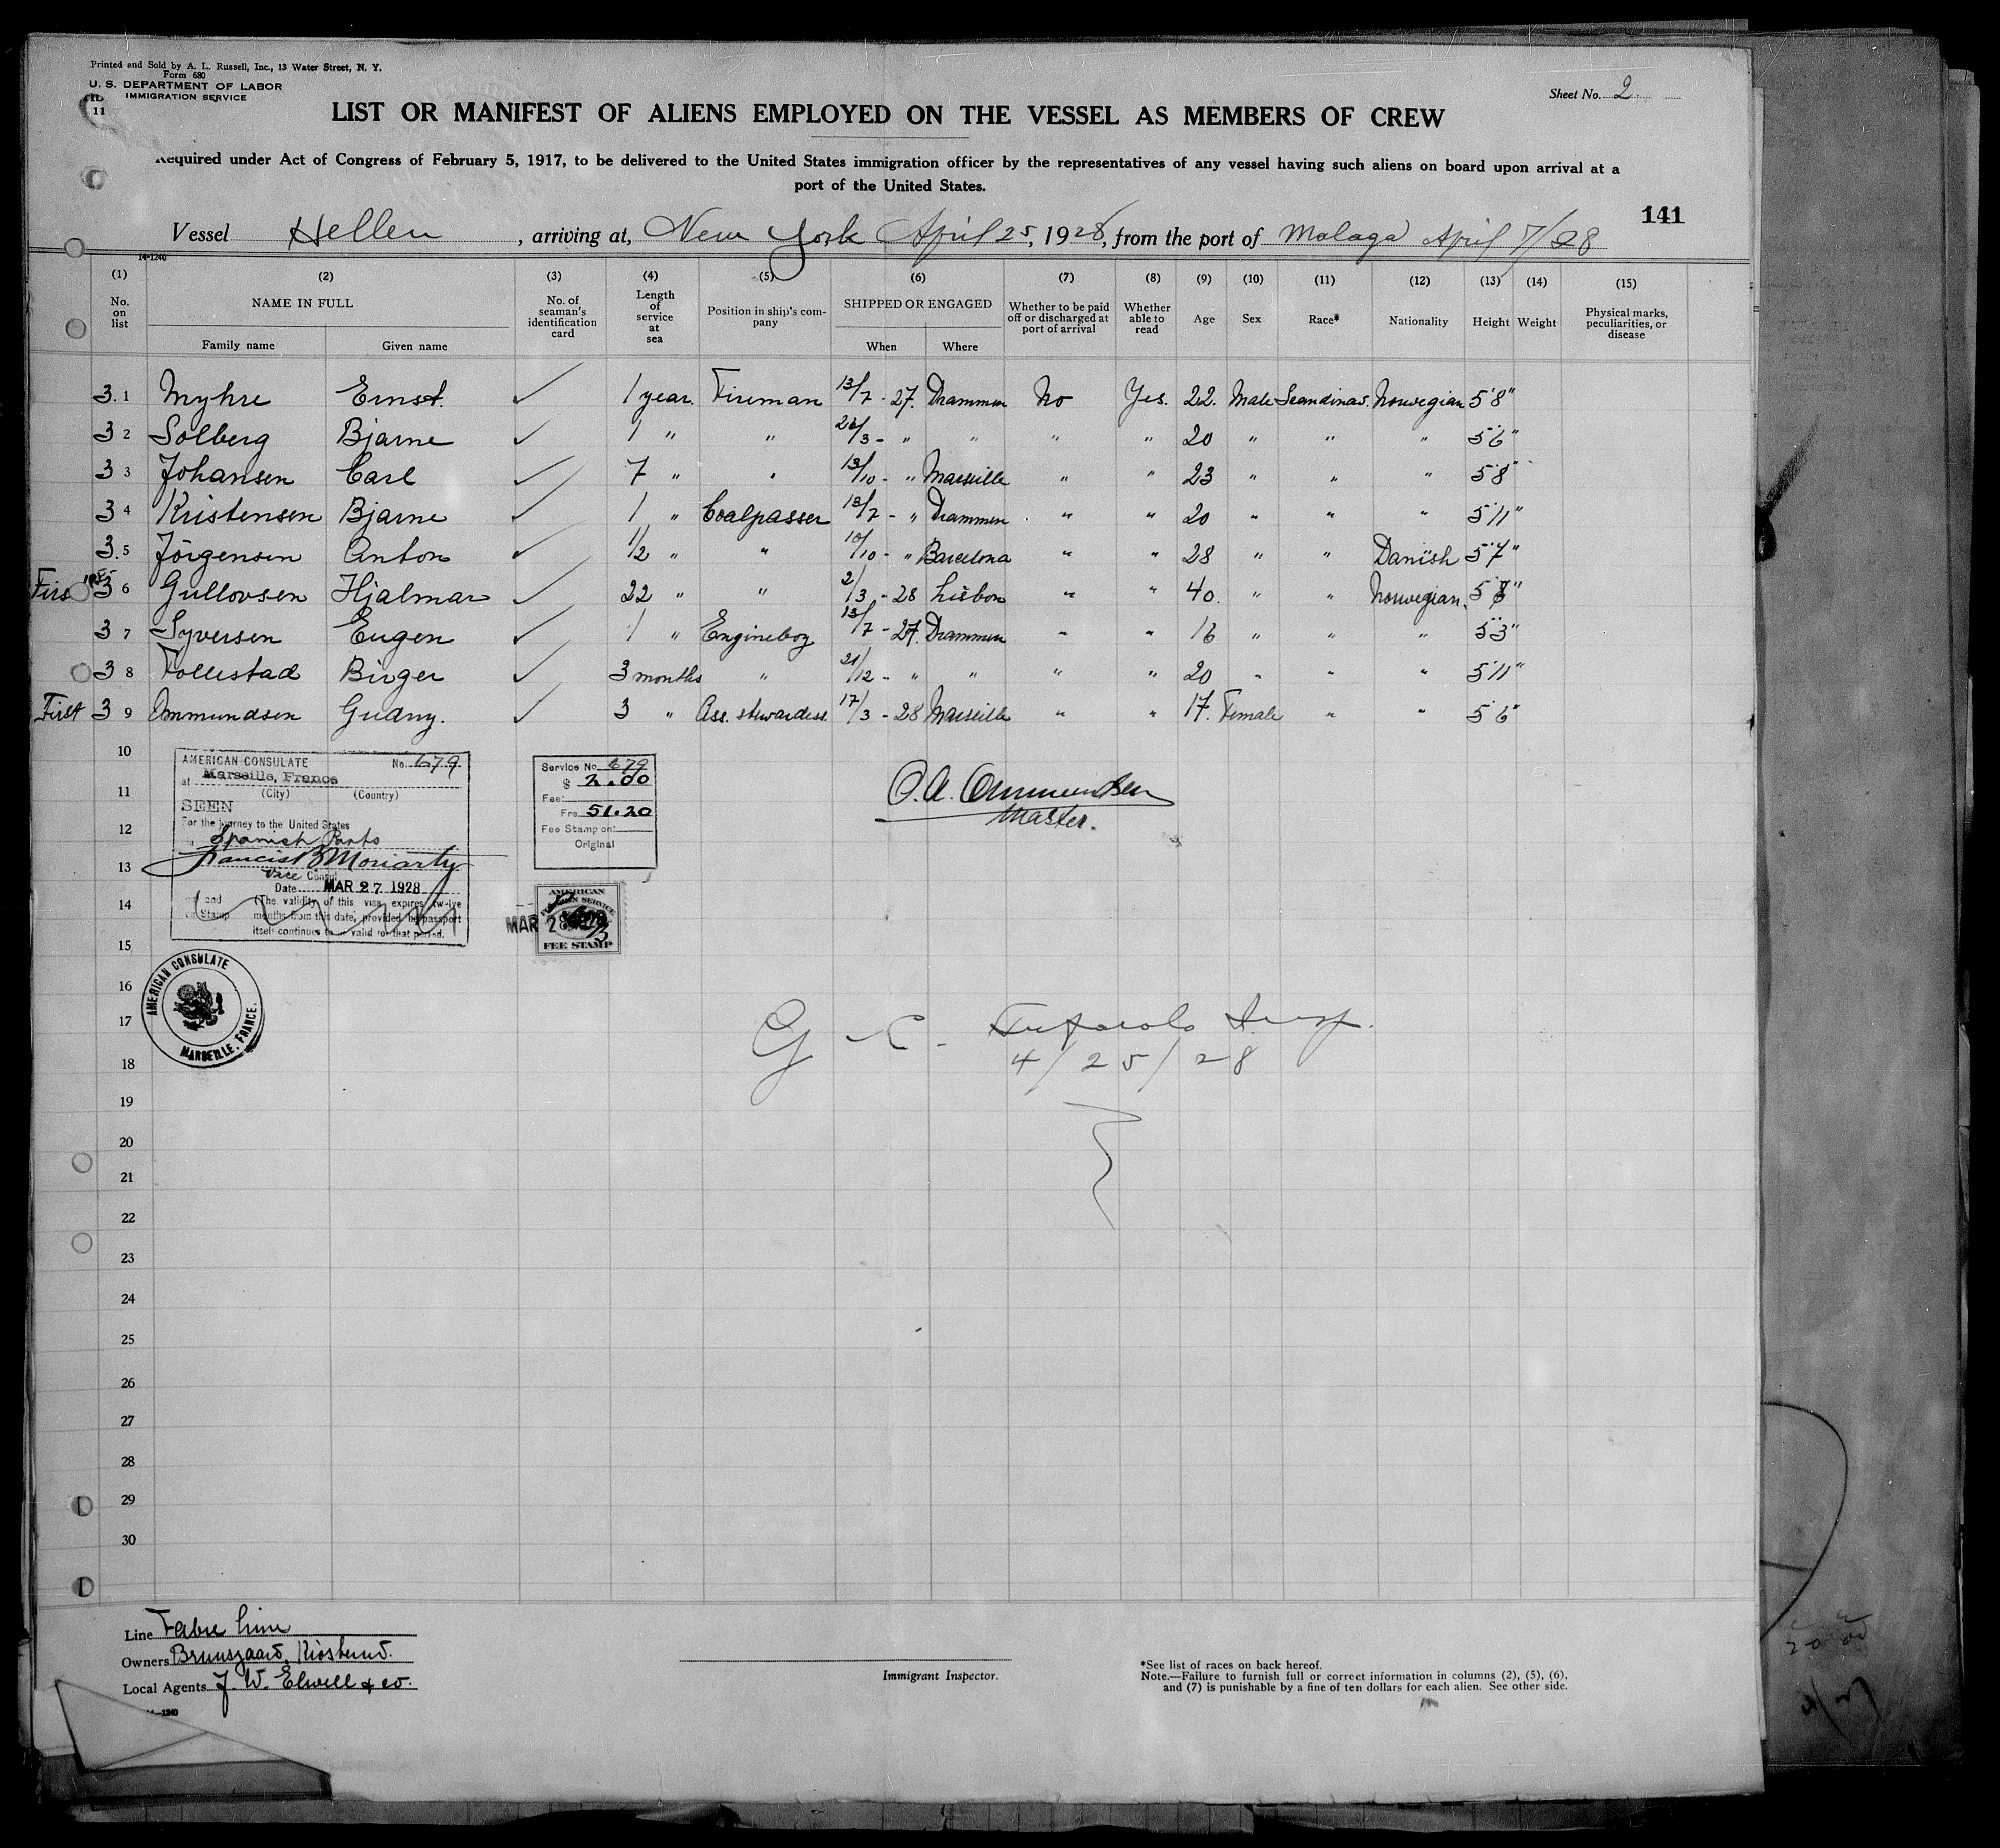 Printed and Sold by A. L. Russell, Inc., 13 Water Street, N. Y.
Form 680
U. S. DEPARTMENT OF LABOR
IMMIGRATION SERVICE
11
Sheet No. 2
LIST OR MANIFEST OF ALIENS EMPLOYED ON THE VESSEL AS MEMBERS OF CREW
Required under Act of Congress of February 5, 1917, to be delivered to the United States immigration officer by the representatives of any vessel having such aliens on board upon arrival at a
port of the United States.
141
Vessel Hellen, arriving at, New York April 25, 1928, from the port of Malaga April 7/28
14-1240
(1) (2) (3) (4) (5) (6) (7) (8) (9) (10) (11) (12) (13) (14) (15)
No. on list NAME IN FULL Family name Given name No. of seaman's identification card Length of service at sea Position in ship's company SHIPPED OR ENGAGED When Where Whether to be paid off or discharged at port of arrival Whether able to read Age Sex Race* Nationality Height Weight Physical marks, peculiarities, or disease
3. 1 Myhre Ernst. ✓ 1 year. Fireman 13/7 - 27. Drammen No Yes. 22. Male Scandinav. Norwegian 5'8"
3 2 Solberg Bjarne ✓ 1 " " 22/3 - " " " " 20 " " " 5'6"
3 3 Johansen Carl ✓ 7 " " 13/10 - " Marseille " " 23 " " " 5'8"
3 4 Kristensen Bjarne ✓ 1 " Coalpasser 13/7 - " Drammen " " 20 " " " 5'11"
3. 5 Jörgensen Anton ✓ 1/2 " " 10/10 - " Barcelona " " 28 " " Danish 5'7"
First 3 6 Gullovsen Hjalmar ✓ 22 " " 2/3 - 28 Lisbon " " 40. " " Norwegian. 5'8"
3 7 Syversen Eugen ✓ 1 " Engineboy 13/7 - 27. Drammen " " 16 " " " 5'3"
3 8 Follestad Birger ✓ 3 months " 21/12 - " " " " 20 " " " 5'11"
First 3 9 Ommundsen Gudny. ✓ 3 " Ass. stewardess. 17/3 - 28 Marseille " " 17. Female " " 5'6"
10
11
12
13
14
15
16
17
18
19
20
21
22
23
24
25
26
27
28
29
30
AMERICAN CONSULATE No. 679
at Marseille, France
(City) (Country)
SEEN
For the journey to the United States
Spanish Ports
Francis B Moriarty
Vice Consul
Date MAR 27 1928
(The validity of this visa expires twelve
months from this date, provided the passport
itself continues to be valid for that period.
Service No. 679
$ 2.00
Fee:
Frs 51.20
Fee Stamp on:
Original
AMERICAN
FOREIGN SERVICE
MAR 28 1928
FEE STAMP
AMERICAN CONSULATE
MARSEILLE, FRANCE.
O. A. Ommundsen
Master.
4/25/28
Line Fabre Line
Owners Bruusgaard, Kiösterud.
Local Agents J. W. Elwell & co.
Immigrant Inspector.
*See list of races on back hereof.
Note.—Failure to furnish full or correct information in columns (2), (5), (6),
and (7) is punishable by a fine of ten dollars for each alien. See other side.